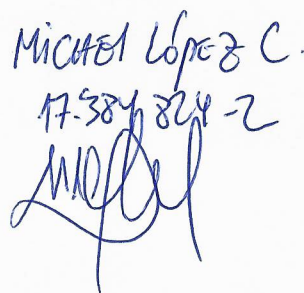 MICHAEL LÓPEZ C.
17.384 824-2